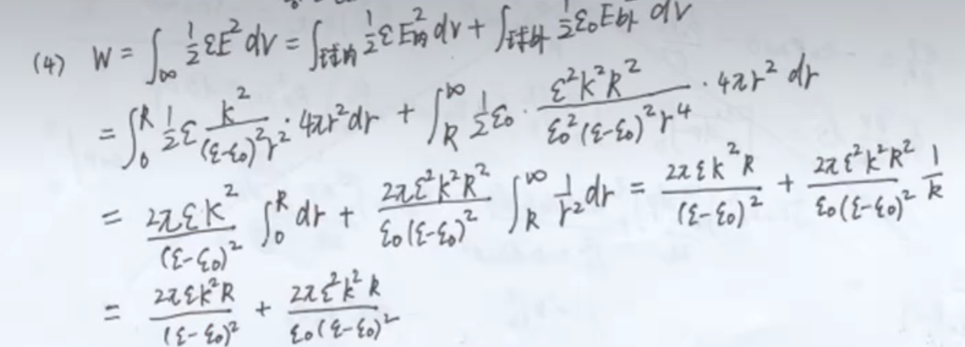 (4) W = ∫_∞ 1/2 εE² dv = ∫_球内 1/2 ε E内² dv + ∫_球外 1/2 ε₀ E外 dv
= ∫₀^R 1/2 ε k²/((ε-ε₀)²r²) · 4πr² dr + ∫_R^∞ 1/2 ε₀ · ε²k²R²/(ε₀²(ε-ε₀)²r⁴) · 4πr² dr
= 2πεk²/(ε-ε₀)² ∫₀^R dr + 2πε²k²R²/(ε₀(ε-ε₀)²) ∫_R^∞ 1/r² dr = 2πεk²R/(ε-ε₀)² + 2πε²k²R²/(ε₀(ε-ε₀)²) 1/k
= 2πεk²R/(ε-ε₀)² + 2πε²k²R/(ε₀(ε-ε₀)²)